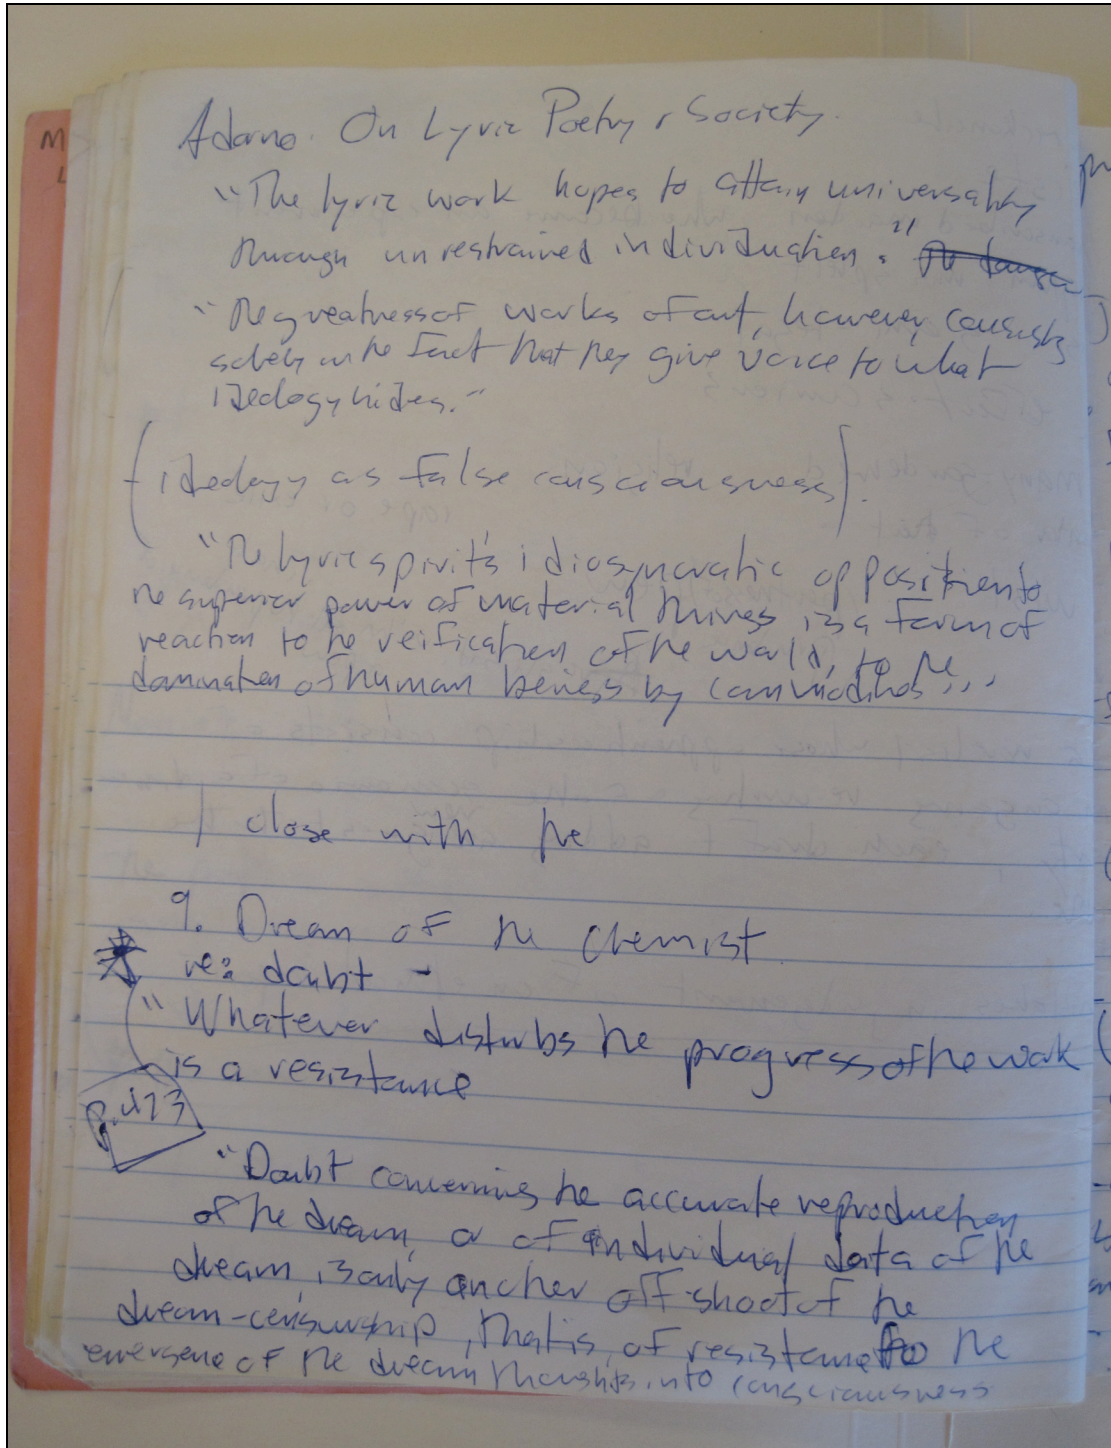 Adorno. On Lyric Poetry & Society.
"The lyric work hopes to attain universality
through unrestrained individuation." The danger
"The greatness of works of art, however, consists
solely in the fact that they give voice to what
ideology hides."
(ideology as false consciousness).
"The lyric spirit's idiosyncratic opposition to
the superior power of material things is a form of
reaction to the reification of the world, to the
domination of human beings by commodities...
I close with the
9. Dream of the Chemist.
re: doubt -
"Whatever disturbs the progress of the work
is a resistance
p. 473
"Doubt concerning the accurate reproduction
of the dream, or of individual data of the
dream, is only another off-shoot of the
dream-censorship, that is, of resistance to the
emergence of the dream thoughts into consciousness
M
L